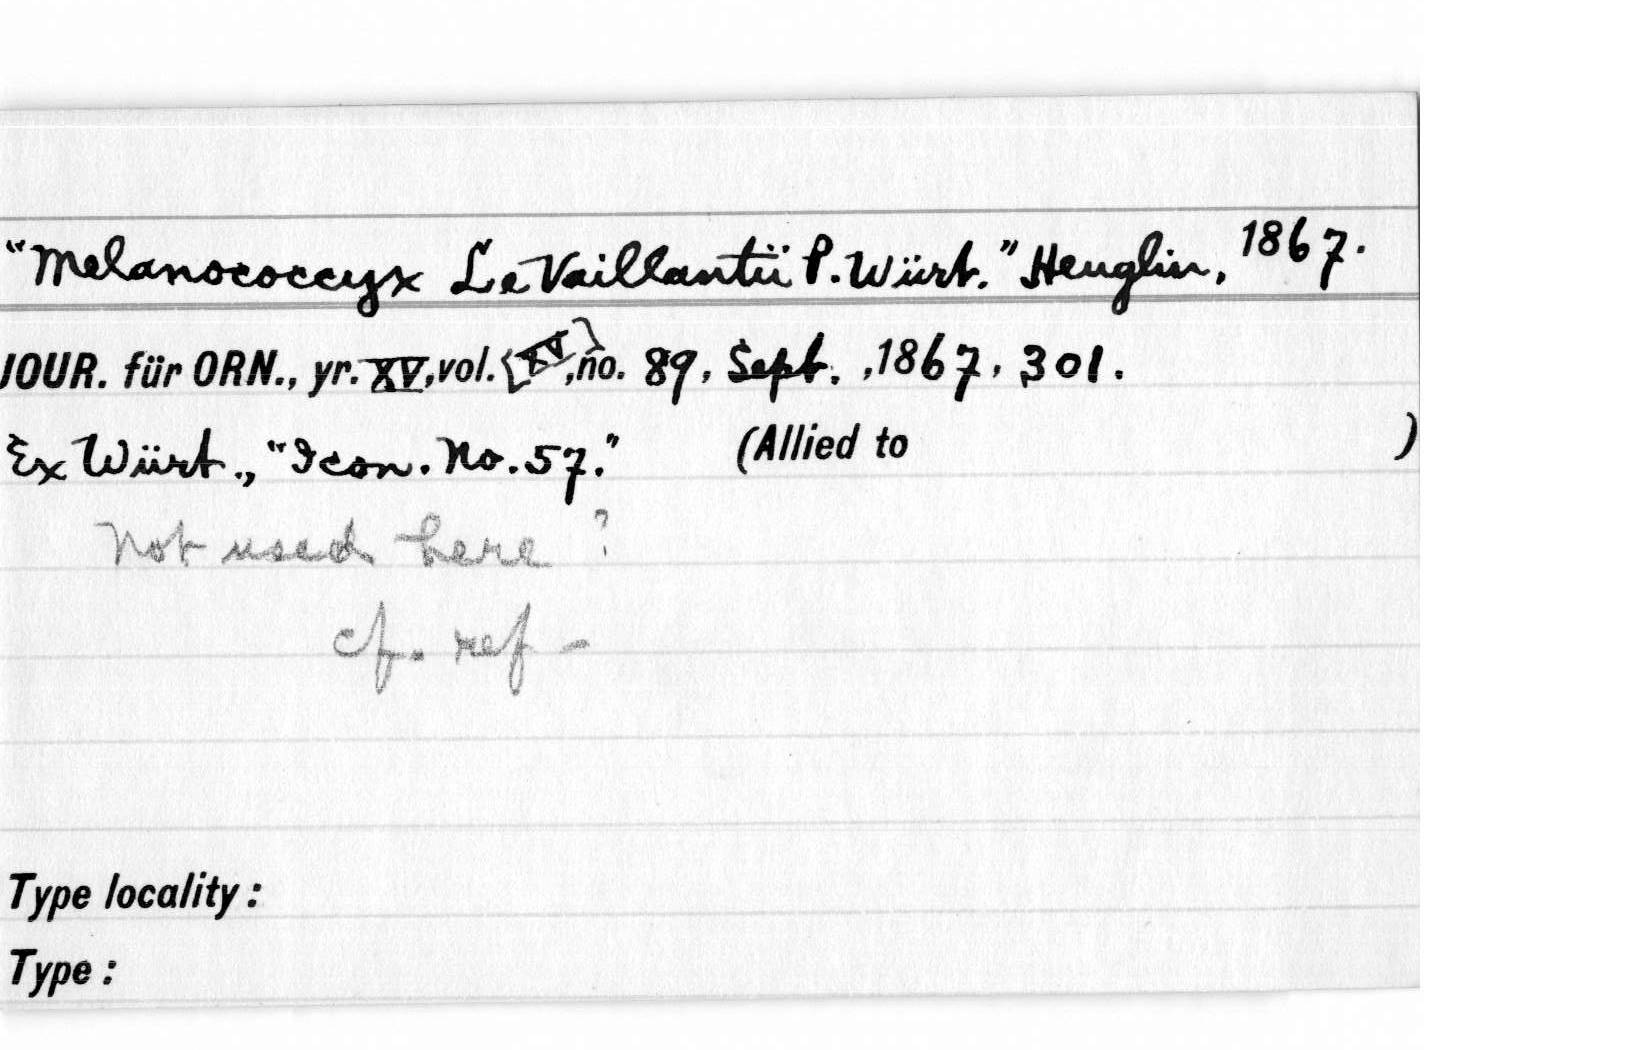 "Melanococcyx LeVaillantii P. Würt." Heuglin, 1867.
JOUR. für ORN., yr. XV, vol. [XV], no. 89, Sept. ,1867, 301.
Ex Würt., "Icon. No. 57." (Allied to )
Not used here ?
cf. ref -
Type locality :
Type :